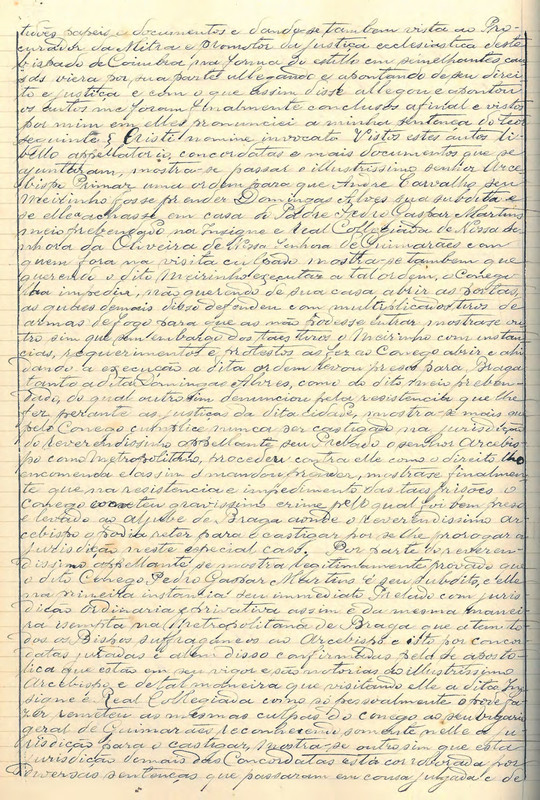 tudes papeis, e documentos e dando-se tambem vista ao Pro-
curador da Mitra e Promotor da justiça ecclesiastica deste
bispado de Coimbra, na forma do estillo em semelhantes cau
sas viera por sua parte allegando e apontando de seu direi
to e justiça e com o que assim disse allegou e apontou
os autos me foram finalmente conclusos afinal e vistos
por mim em elles pronunciei a minha sentença do teor
seguinte § Cristi nomine invocato Vistos estes autos li-
bello appellatorio, concordatas e mais documentos que se
ajuntaram, mostra-se passar o illustrissimo senhor Arce
bispo Primaz uma ordem para que André Carvalho seu
Meirinho fosse prender Domingas Alves sua subdita e
se elle achasse em casa do Padre Pedro Gaspar Martins
meio prebendado na Insigne e Real Collegiada de Nossa Se
nhora da Oliveira de Nossa Senhora de Guimarães com
quem fora na visita culpado mostra-se tambem que
querendo o dito Meirinho executar a tal ordem, o Conego
lha impediu, não querendo de sua casa abrir as portas,
as quaes demais disso defendeu com multiplicados tiros de
armas de fogo para que as não podesse entrar, mostra-se ou
tro sim que sem embargo dos taes tiros o Meirinho com instan
cias, requerimentos e protestos as fez ao Conego abrir e
dando a execução a dita ordem levou presos para Braga
tanto a dita Domingas Alves, como ao dito meio preben-
dado, do qual outrosim denunciou pela resistencia que lhe
fez perante as justiças da dita cidade, mostra-se mais
pelo Conego cumplice nunca ser castigado na jurisdição
do reverendissimo appellante, seu Prelado o senhor Arcebis
po como Metropolitano, proceder contra elle como o direito lhe
encomenda e las sim o mandou prender, mostra-se finalmen
te que na resistencia e impedimento das taes prisões o
Conego cometeu gravissimo crime pelo qual foi bem preso
e levado ao aljube de Braga aonde o reverendissimo ar-
cebispo o podia reter para o castigar por se lhe prorogar a
jurisdição neste especial caso. Por parte do reveren-
dissimo appellante se mostra legitimamente provado que
o dito Conego Pedro Gaspar Martins é seu subdito, e elle
na primeira instancia seu immediato Prelado com juris
dicção ordinaria e privativa assim e da mesma manei
ra isempta na Metropolitana de Braga que a tem to
dos os Bispos suffraganeos ao Arcebispo e isto por concor
datas juradas e alem disso confirmadas pela Sé aposto-
lica que estão em seu vigor e são notorias ao illustrissimo
Arcebispo e de tal maneira que visitando elle a dita In-
signe e Real Collegiada como só pessoalmente o pode fa-
zer, remeteu as mesmas culpas do conego ao seu vigario
geral de Guimarães reconhecendo somente nelle a ju-
risdição para o castigar, Mostra-se outrosim que esta
jurisdição demais das Concordatas está corroborada por
diversas sentenças que passaram em cousa julgada e de